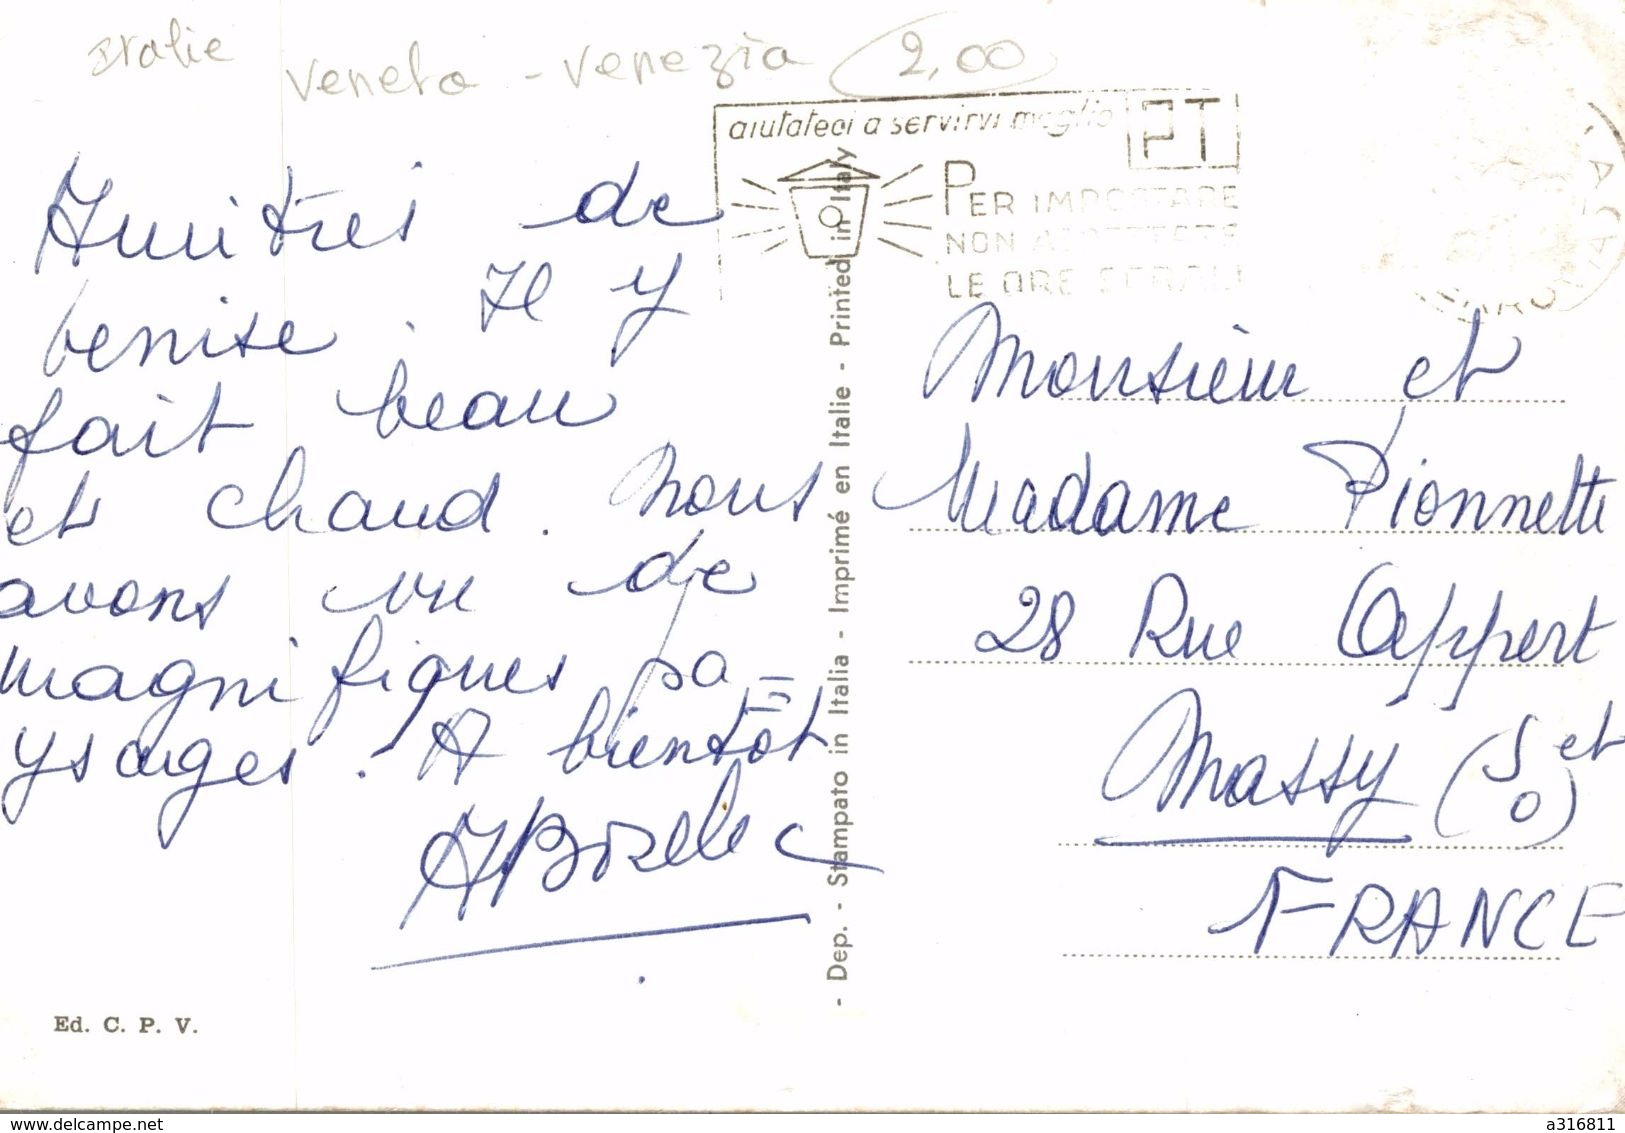 Italie Veneto - Venezia 2,00
aiutateci a servirvi meglio PT
PER IMPOSTARE
NON ASPETTATE
LE ORE SERALI
Amitiés de
Venise. Il y
fait beau
et chaud. Nous
avons vu de
magnifiques pa
ysages. A bientôt
Monsieur et
Madame Pionnette
28 Rue Appert
Massy (S et O)
FRANCE
- Dep. - Stampato in Italia - Imprimé en Italie - Printed in Italy
Ed. C. P. V.
www.delcampe.net
a316811